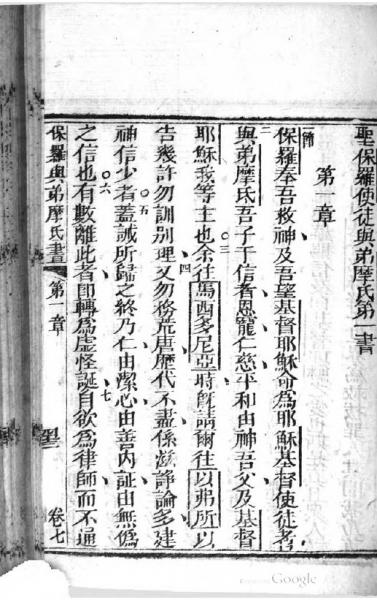 聖保羅使徒與弟摩氏第一書
第一章
一節保羅奉吾救神及吾望基督耶穌命爲耶穌基督使徒者
二與弟摩氏吾子于信者恩寵仁慈平和由神吾父及基督
耶穌我等主也三余往馬西多尼亞時旣請爾往以弗所以
告幾許勿訓別理四又勿務荒唐歷代不盡係滋諍論多建
神信少者五蓋誡所歸之終乃仁由潔心由善內証由無偽
之信也六有數離此者即轉爲虛怪誕七自欲爲律師而不通
保羅與弟摩氏書 第一章 卷七
Google